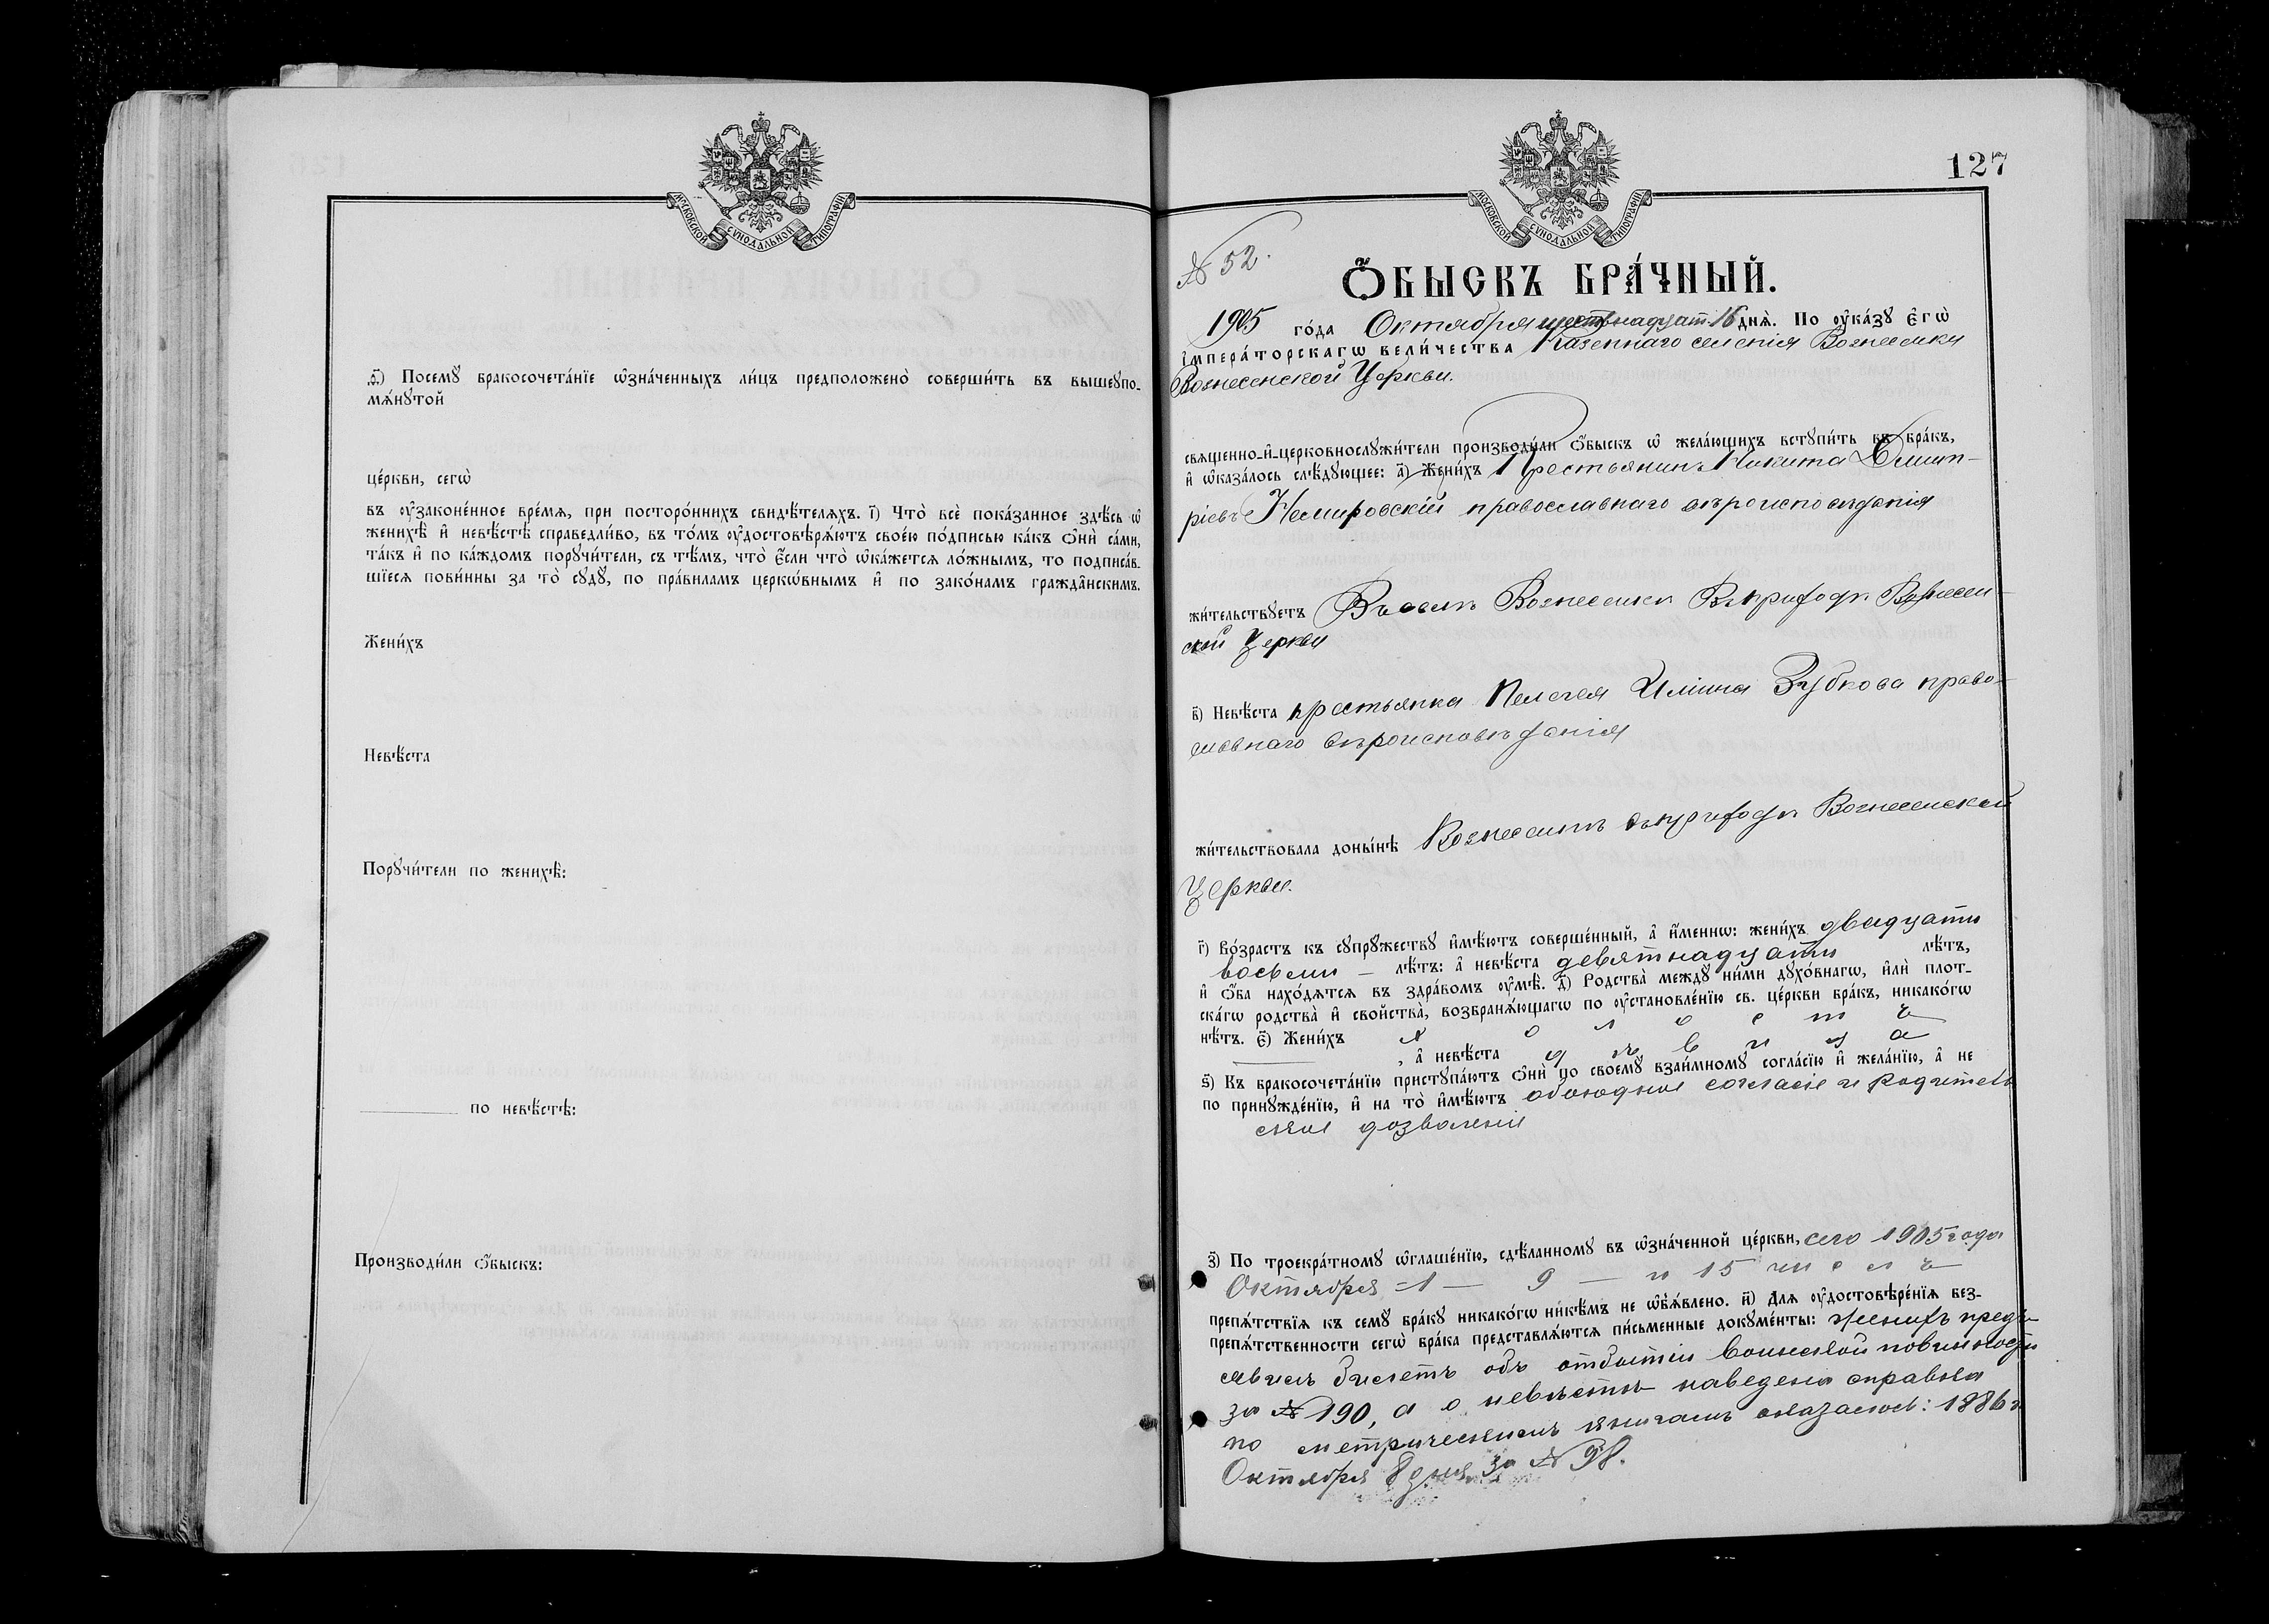 МОСКОВСКОЙ СѴНОДАЛЬНОЙ ТИПОГРАФІИ
ѳ҃) Посемꙋ бракосочета́нїе ѡ҆зна́ченныхъ ли́цъ предположено̀ соверши́ть въ вышеꙋпо-
мѧ́нꙋтой
це́ркви, сегѡ̀
въ ᲂу҆законе́нное вре́мѧ, при посторо́ннихъ свидѣ́телѧхъ. і҃) Что̀ всѐ пока́занное здѣ́сь ѡ҆
женихѣ̀ и҆ невѣ́стѣ справедли́во, въ то́мъ ᲂу҆достовѣрѧ́ютъ свое́ю по́дписью ка́къ ѻ҆нѝ са́ми,
та́къ и҆ по ка́ждомъ порꙋчи́тели, съ тѣ́мъ, что̀ є҆́сли что̀ ѡ҆ка́жетсѧ ло́жнымъ, то подписа́в-
шїесѧ пови́нны за то̀ сꙋдꙋ̀, по пра́виламъ церкѡ́внымъ и҆ по зако́намъ гражда̑нскимъ.
Жени́хъ
Невѣ́ста
Порꙋчи́тели по женихѣ̀:
по невѣ́стѣ:
Производи́ли ѻ҆́быскъ:
127
МОСКОВСКОЙ СѴНОДАЛЬНОЙ ТИПОГРАФІИ
№ 52.
Ѻ҆́БЫСКЪ БРА́ЧНЫЙ.
1905 го́да Октября шестнадцат. 16 днѧ̀. По ᲂу҆ка́зꙋ є҆гѡ̀
і҆мпера́торскагѡ вели́чества Казеннаго селенія Вознесенки
Вознесенской Церкви.
свѧщенно-и҆-церковнослꙋжи́тели производи́ли ѻ҆́быскъ ѡ҆ жела́ющихъ встꙋпи́ть въ бра́къ,
и҆ ѡ҆каза́лось слѣ́дꙋющее: а҃) Жени́хъ Крестьянинъ Никита Дмит-
ріевъ Немировскій православнаго вѣроисповѣданія
жи́тельствꙋетъ Въ селѣ Вознесенки Въ приходѣ Вознесен-
ской Церкви
в҃) Невѣ́ста крестьянка Пелагея Иліина Зубкова право-
славнаго вѣроисповѣданія
жи́тельствовала доны́нѣ Вознесенкѣ въ приходѣ Вознесенской
Церкви.
г҃) Во́зрастъ къ сꙋпрꙋ́жествꙋ и҆мѣ́ютъ соверше́нный, а҆ и҆́меннѡ: жени́хъ двадцати
восьми — лѣ́тъ: а҆ невѣ́ста девятнадцати лѣ́тъ,
и҆ ѻ҆́ба нахо́дѧтсѧ въ здра́вомъ ᲂу҆мѣ̀. д҃) Родства̀ междꙋ ни́ми дꙋхо́внагѡ, и҆лѝ плот-
ска́гѡ родства̀ и҆ сво́йства, возбранѧ́ющагѡ по ᲂу҆становле́нїю св. це́ркви бра́къ, никако́гѡ
нѣ́тъ. є҃) Жени́хъ холостъ
, а҆ невѣ́ста дѣвица
ѕ҃) Къ бракосочета́нїю пристꙋпа́ютъ ѻ҆нѝ по своемꙋ̀ взаи́мномꙋ согла́сїю и҆ жела́нїю, а҆ не
по принꙋжде́нїю, и҆ на то̀ и҆мѣ́ютъ обоюдное согласіе и родитель
ское дозволеніе
з҃) По троекра́тномꙋ ѡ҆глаше́нїю, сдѣ́ланномꙋ въ ѡ҆зна́ченной це́ркви, сего 1905 года
Октября — 1 — 9 — и 15 числъ
препѧ́тствїѧ къ семꙋ̀ бра́кꙋ никако́гѡ никѣ́мъ не ѡ҆б̾ѧ́влено. и҃) Длѧ ᲂу҆достовѣре́нїѧ без-
препѧ́тственности сегѡ̀ бра́ка представлѧ́ютсѧ пи́сьменные докꙋме́нты: женихъ предъ-
явилъ билетъ объ отбытіи воинской повинности
за № 190, а о невѣстѣ наведена справка
по метрическимъ книгамъ оказалось: 1886 г.
Октября 8 дня за № 98.